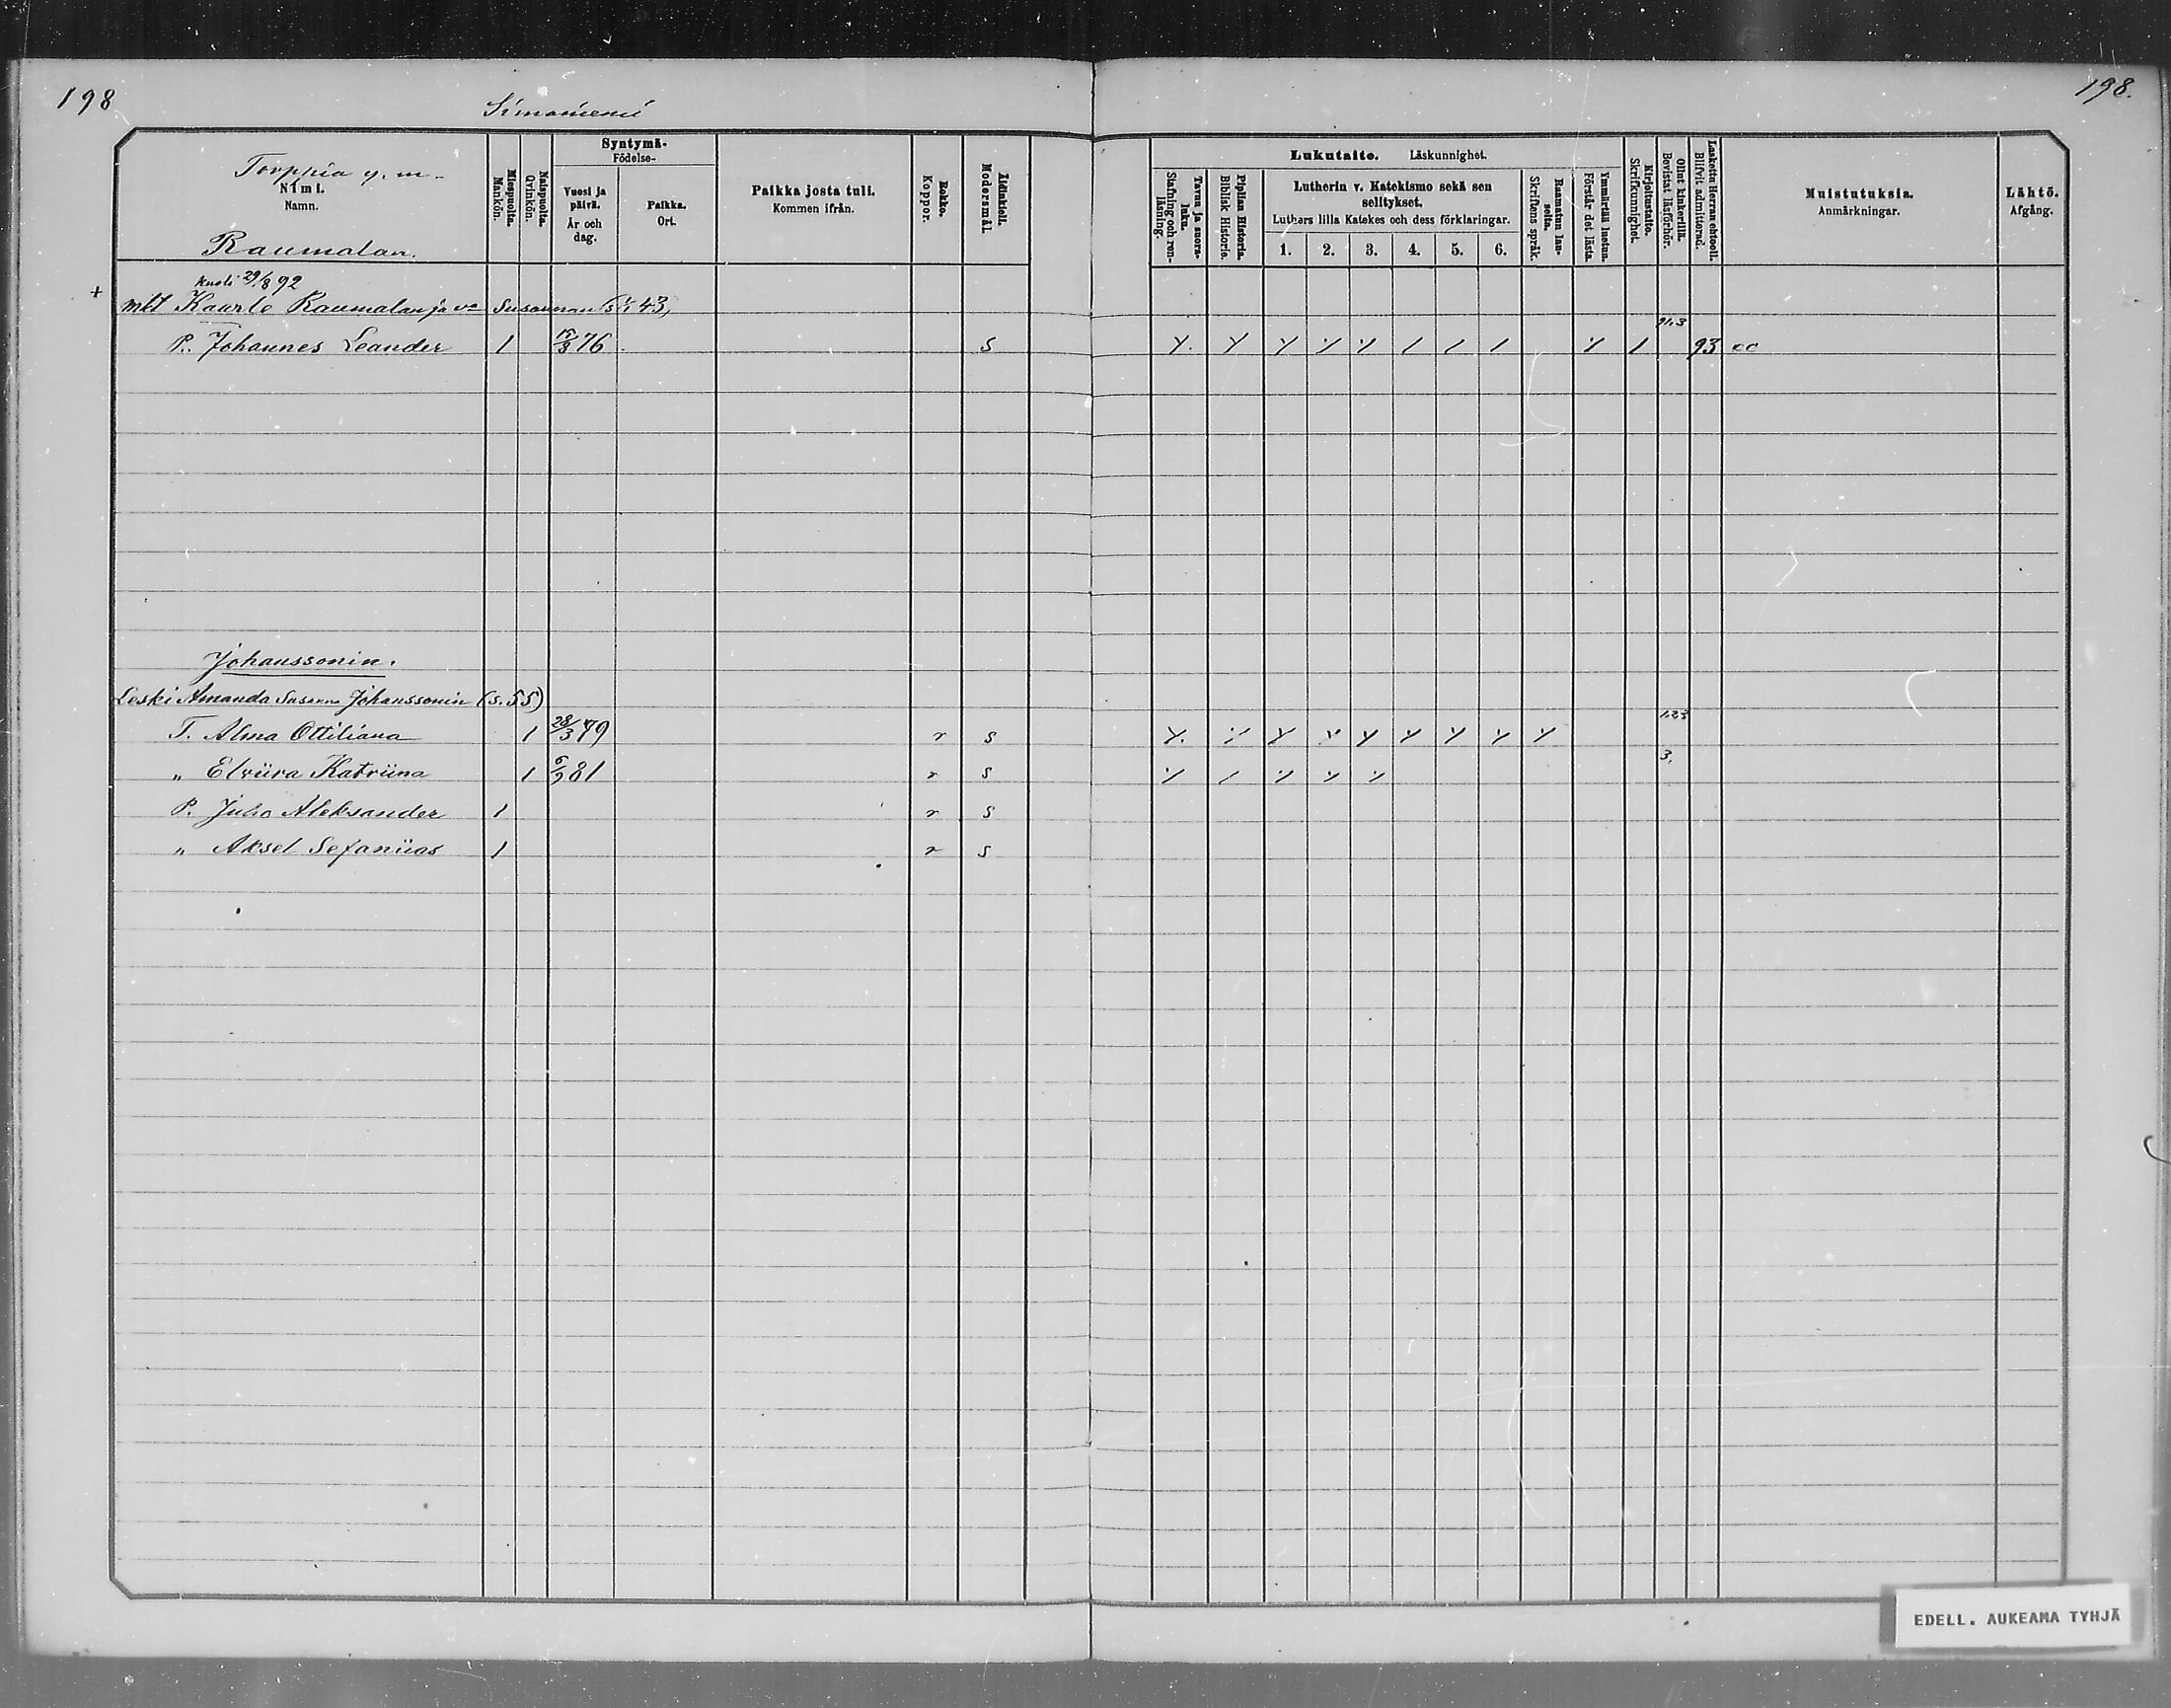 198
Simonniemi
198.
Torppia y. m.
Nimi.
Namn.
Raumolan.
Miespuolta.
Mankön.
Naispuolta.
Qvinkön.
Syntymä-
Födelse-
Vuosi ja päivä.
År och dag.
Paikka.
Ort.
Paikka josta tuli.
Kommen ifrån.
Rokko.
Koppor.
Äidinkieli.
Modersmål.
Lukutaito. Läskunnighet.
Tavuu ja suora-luku.
Stafning och ren-läsning.
Piplian Historia.
Biblisk Historie.
Lutherin v. Katekismo sekä sen
selitykset.
Luthers lilla Katekes och dess förklaringar.
1. 2. 3. 4. 5. 6.
Raamatun lau-seita.
Skriftens språk.
Ymmärtää luetun.
Förstår det lästa.
Kirjoitustaito.
Skrifkunnighet.
Ollut kinkerillä.
Bevistat läsförhör.
Laskettu Herran ehtooll.
Blifvit admitterad.
Muistutuksia.
Anmärkningar.
Lähtö.
Afgång.
+ Kuoli 29/8 92
Mkt Kaarlo Raumolan ja va Susannan 43,
P. Johannes Leander 1 15/3 76 S 91.3 93 cc
Johanssonin.
Leski Amanda Susanna Johanssonin (s. 55)
T. Alma Ottiliana 1 28/3 79 r S 1.2.3
„ Elviira Katriina 1 6/9 81 r S 3.
P. Juho Aleksander 1 r S
„ Aksel Sefaniias 1 r S
EDELL. AUKEAMA TYHJÄ